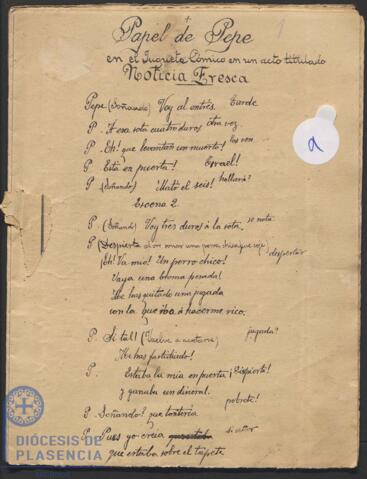 1
Papel de Pepe
en el Juguete Cómico en un acto titulado
Noticia Fresca
Pepe (Soñando) Voy al entrés. Tarde
P. A esa sota cuatro duros otra vez
P. Eh! que levantan un muerto!
P. Está en puerta!
P (Soñando) ¡Mató el seis! hallará?
Escena 2.
P. (Soñando) Voy tres duros á la sota, se nota
P (Despierta al despertar
¡Eh! Va mio! Un perro chico!
Vaya una broma pesada!
Me has quitado una jugada
con la que iba á hacerme rico.
P. Si tal! (Vuelve a jugada?
Me has fastidiado!
P. Estaba la mia en puerta ¡Despierto!
y ganaba un dineral.
P. Soñando! que tontería pobrete!
P. Pues yo creía si señor
que estaba sobre el tapete
a
DIÓCESIS DE
PLASENCIA